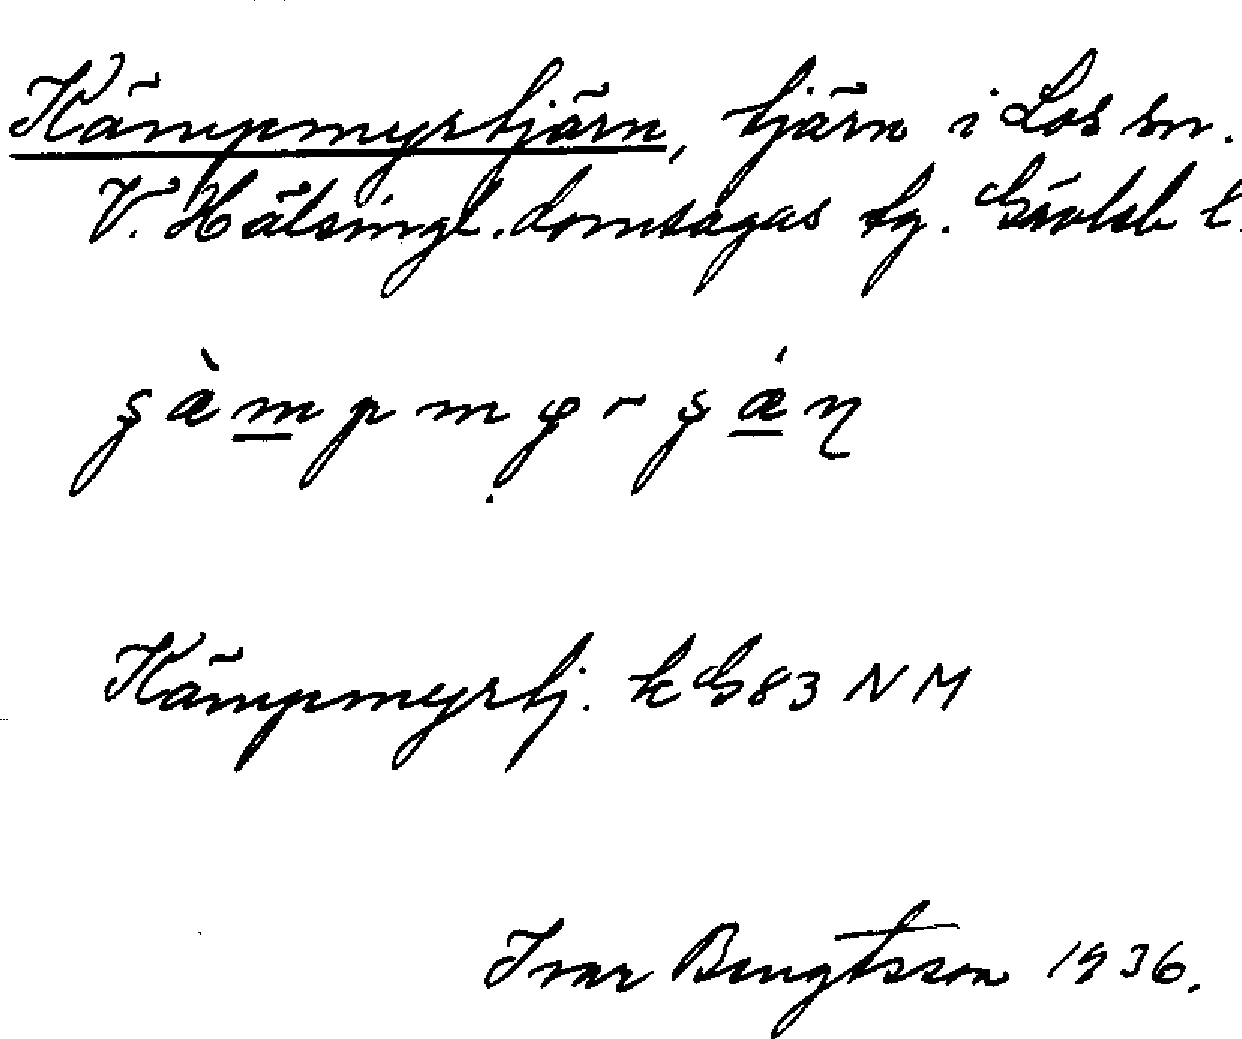 Kämpmyrtjärn, tjärn i Los sn.
V. Hälsingl. domsagas tg. Gävleb l.
Kämpmyrtj. k G83 NM
Ivar Bengtsson 1936.